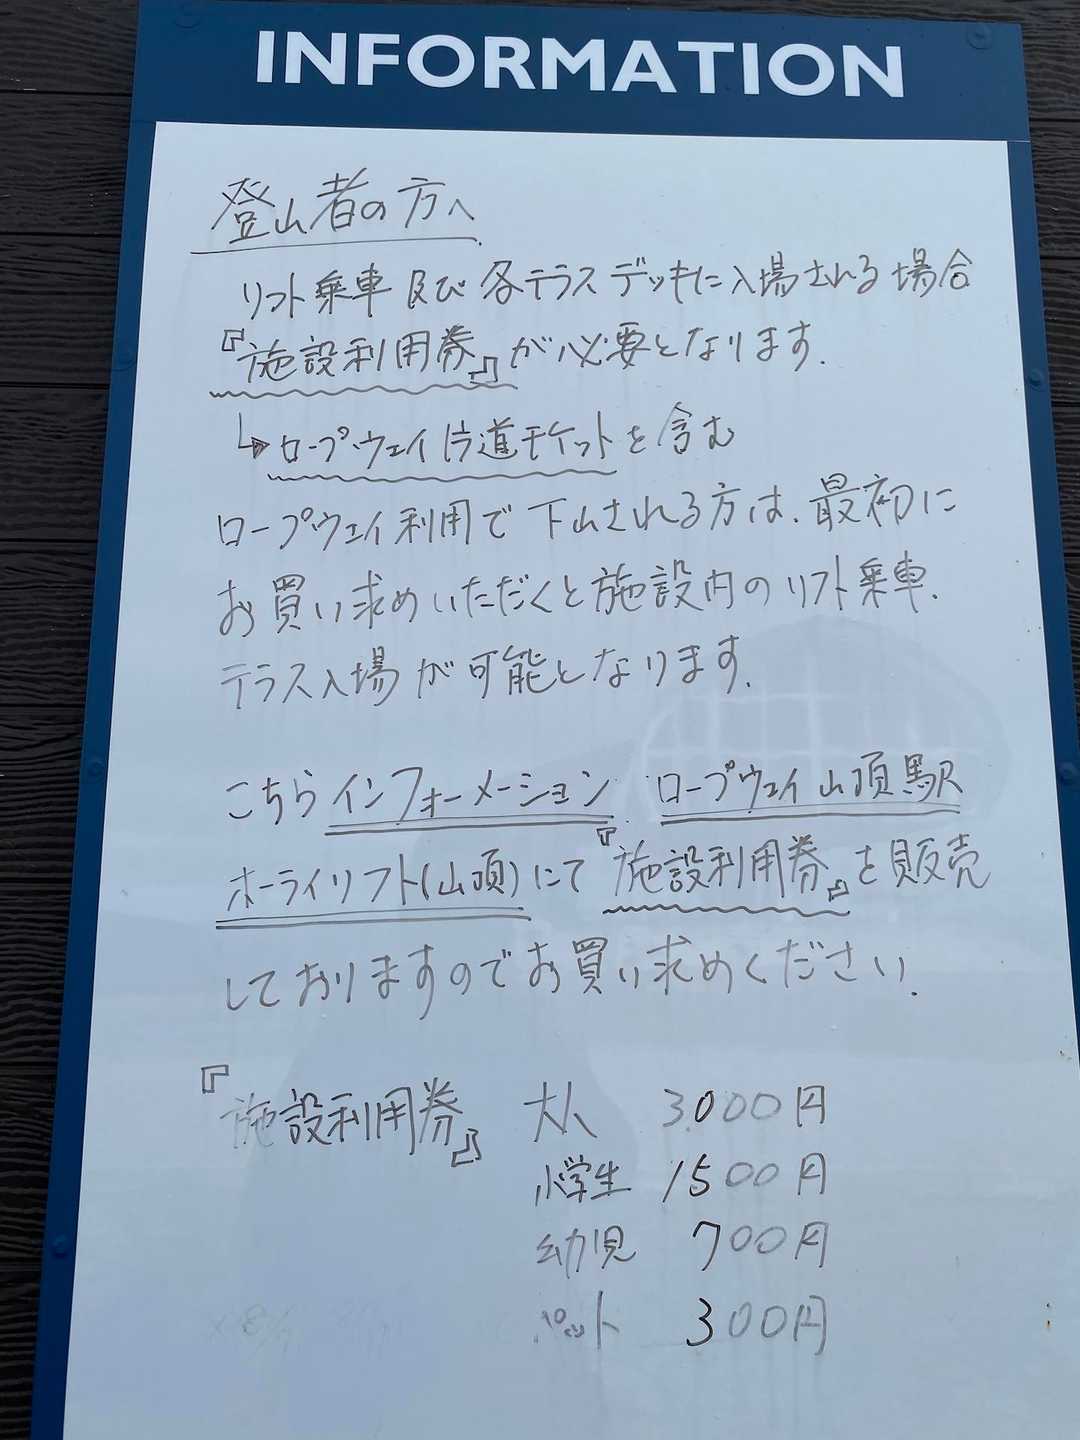 INFORMATION
登山者の方へ
リフト乗車及び各テラスデッキに入場される場合
『施設利用券』が必要となります.
↳ロープウェイ片道チケットを含む
ロープウェイ利用で下山される方は、最初に
お買い求めいただくと施設内のリフト乗車.
テラス入場が可能となります.
こちらインフォーメーション. ロープウェイ山頂駅
ホーライリフト(山頂)にて『施設利用券』を販売
しておりますのでお買い求めください.
『施設利用券』 大人 3.000円
小学生 1500円
幼児 700円
ペット 300円